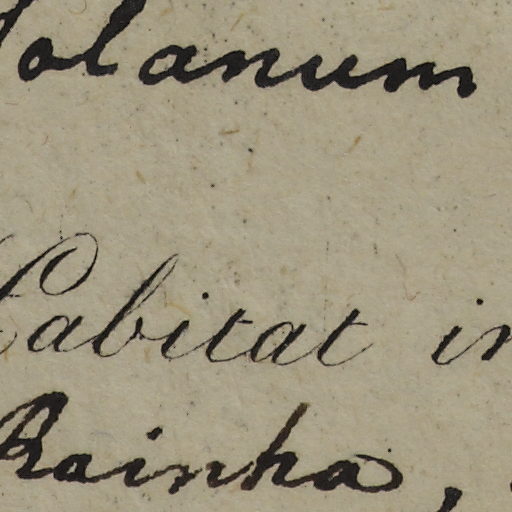 Solanum
Habitat in
Rainha,